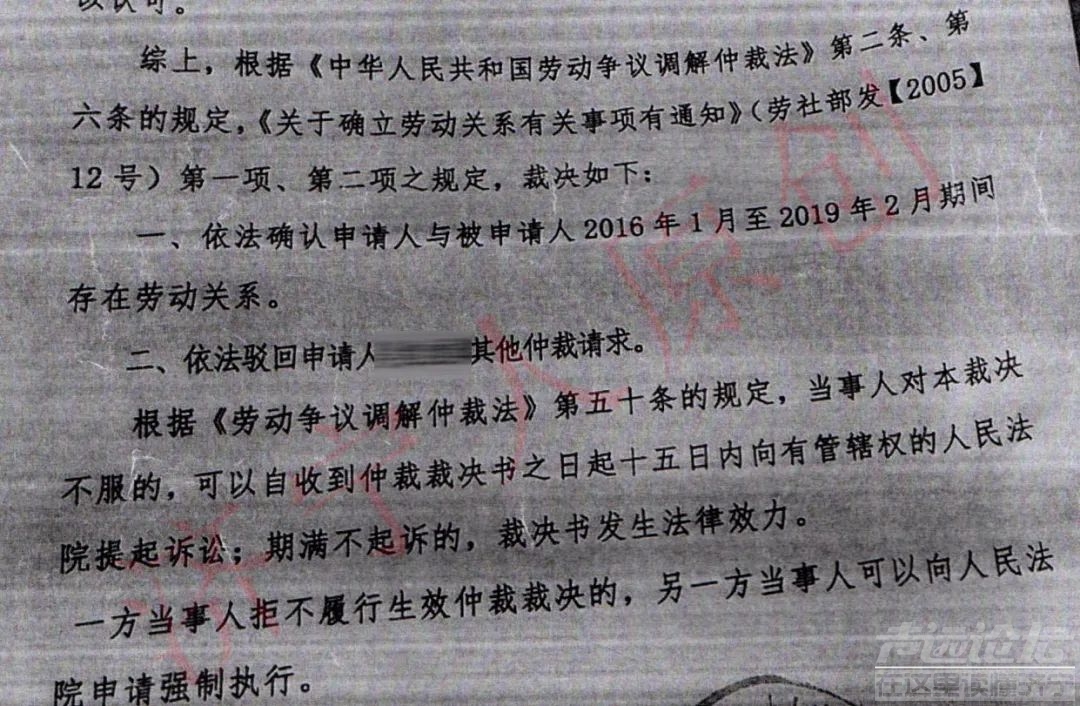 以认可。
综上，根据《中华人民共和国劳动争议调解仲裁法》第二条、第
六条的规定，《关于确立劳动关系有关事项有通知》（劳社部发【2005】
12号）第一项、第二项之规定，裁决如下：
一、依法确认申请人与被申请人2016年1月至2019年2月期间
存在劳动关系。
二、依法驳回申请人其他仲裁请求。
根据《劳动争议调解仲裁法》第五十条的规定，当事人对本裁决
不服的，可以自收到仲裁裁决书之日起十五日内向有管辖权的人民法
院提起诉讼；期满不起诉的，裁决书发生法律效力。
一方当事人拒不履行生效仲裁裁决的，另一方当事人可以向人民法
院申请强制执行。
济宁人原创
在这里读懂济宁